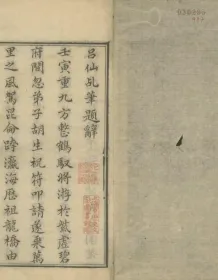 呂仙乩筆題辭
壬寅重九方整鶴馭將游於紫虛碧
府間忽弟子胡生祝符叩請遂乘萬
里之風駕昆侖跨瀛海歷祖龍橋由